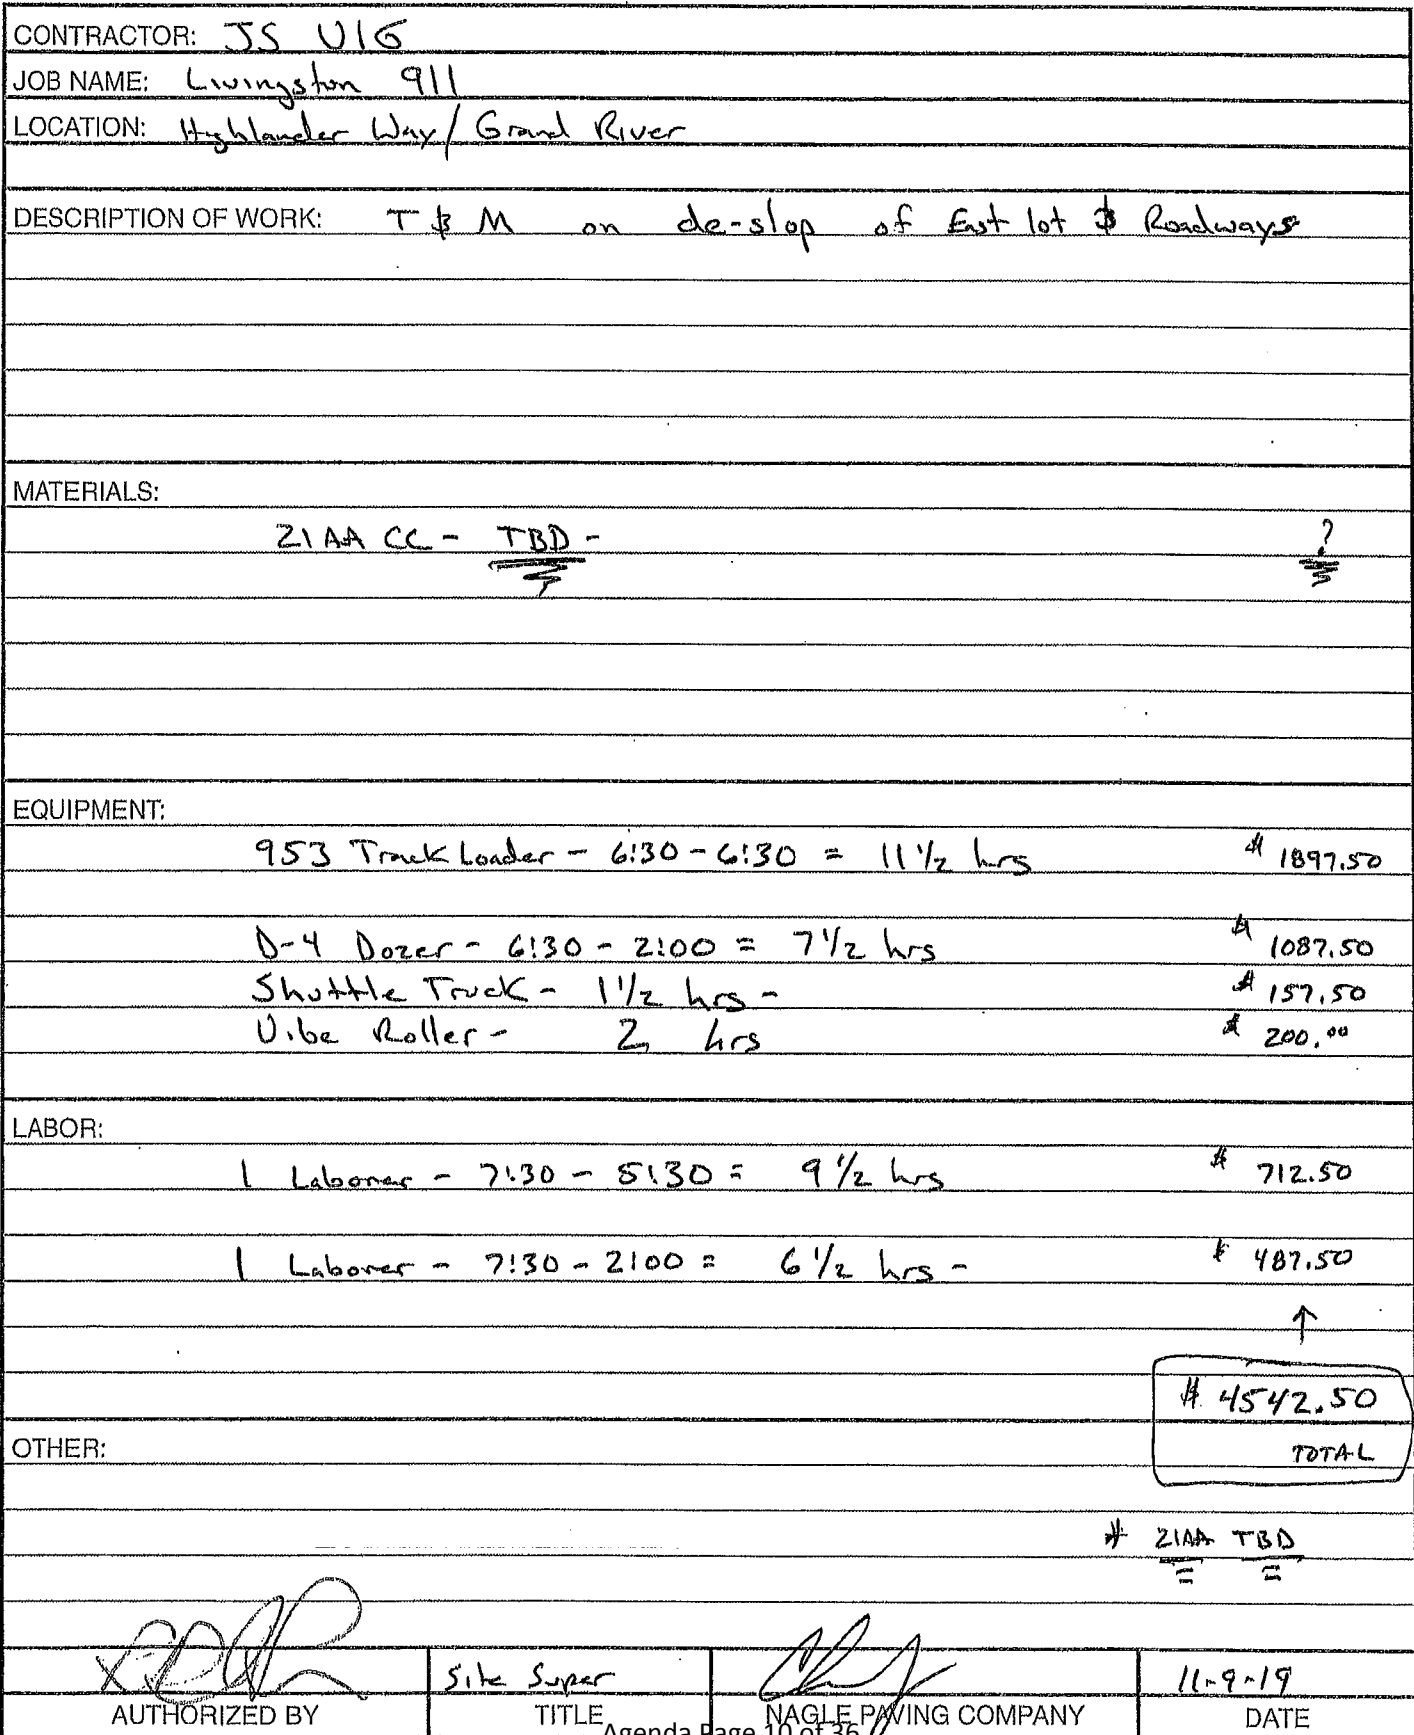 CONTRACTOR: JS VIG
JOB NAME: Livingston 911
LOCATION: Highlander Way / Grand River
DESCRIPTION OF WORK: T & M on de-slop of East lot & Roadways
MATERIALS:
21AA CC - TBD - ?
EQUIPMENT:
953 Track Loader - 6:30 - 6:30 = 11 1/2 hrs $ 1897.50
D-4 Dozer - 6:30 - 2:00 = 7 1/2 hrs $ 1087.50
Shuttle Truck - 1 1/2 hrs - $ 157.50
Vibe Roller - 2 hrs $ 200.00
LABOR:
1 Laborer - 7:30 - 5:30 = 9 1/2 hrs $ 712.50
1 Laborer - 7:30 - 2:00 = 6 1/2 hrs - $ 487.50
$ 4542.50
OTHER: TOTAL
* 21AA TBD
Site Super 11-9-19
AUTHORIZED BY TITLE NAGLE PAVING COMPANY DATE
Agenda Page 10 of 36